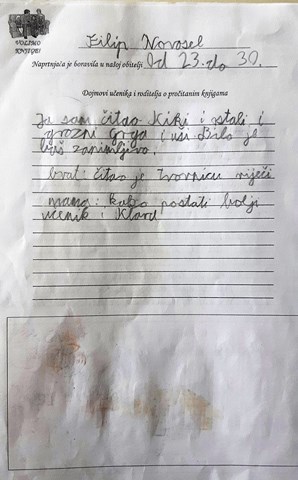 VOLIMO
KNJIGE!
Filip Novosel
Naprtnjača je boravila u našoj obitelji Od 23. do 30.
Dojmovi učenika i roditelja o pročitanim knjigama
Ja sam čitao Kiki i ostali i
grozni Grga i uši Bilo je
baš zanimljivo.
brat: čitao je Tvornicu riječi
mama: kako postati bolji
učenik i